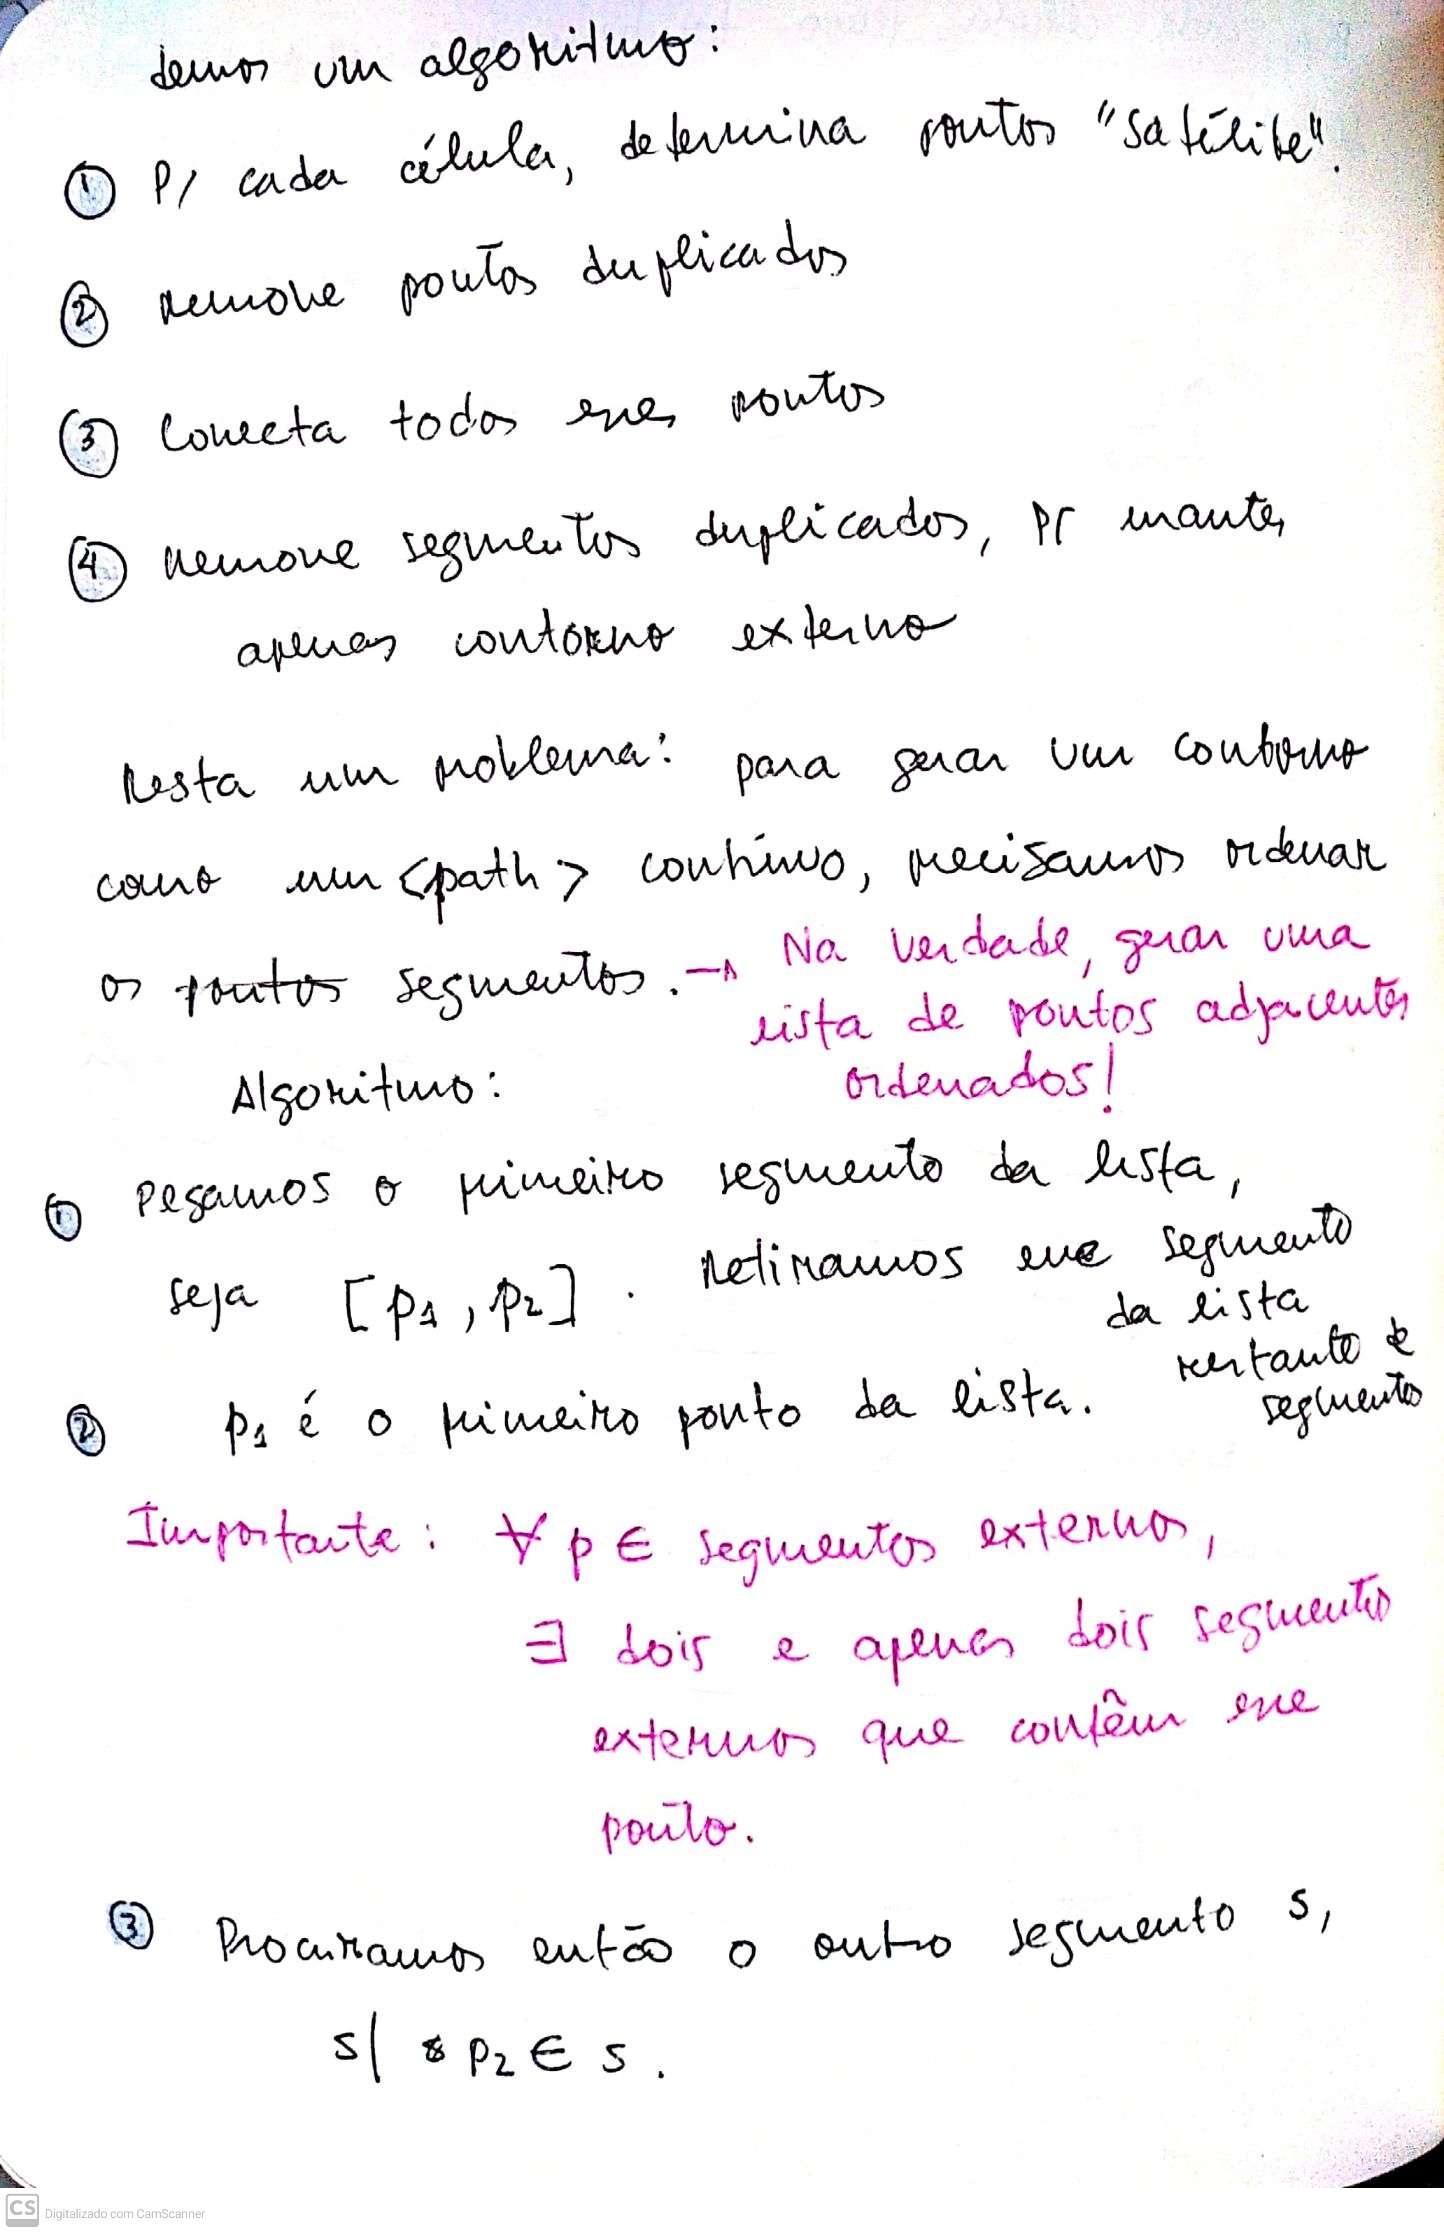 temos um algoritmo:
① P/ cada célula, determina pontos "satélite".
② remove pontos duplicados
③ Conecta todos esses pontos
④ Remove segmentos duplicados, p/ manter
apenas contorno externo
Resta um problema: para gerar um contorno
como um <path> contínuo, precisamos ordenar
os pontos segmentos. → Na verdade, gerar uma
lista de pontos adjacentes
ordenados!
Algoritmo:
① Pegamos o primeiro segmento da lista,
seja [p1, p2]. Retiramos esse segmento
da lista
restante de
segmentos
② p1 é o primeiro ponto da lista.
Importante: ∀ p ∈ segmentos externos,
∃ dois e apenas dois segmentos
externos que contêm esse
ponto.
③ Procuramos então o outro segmento s,
s| p2 ∈ s.
CS Digitalizado com CamScanner